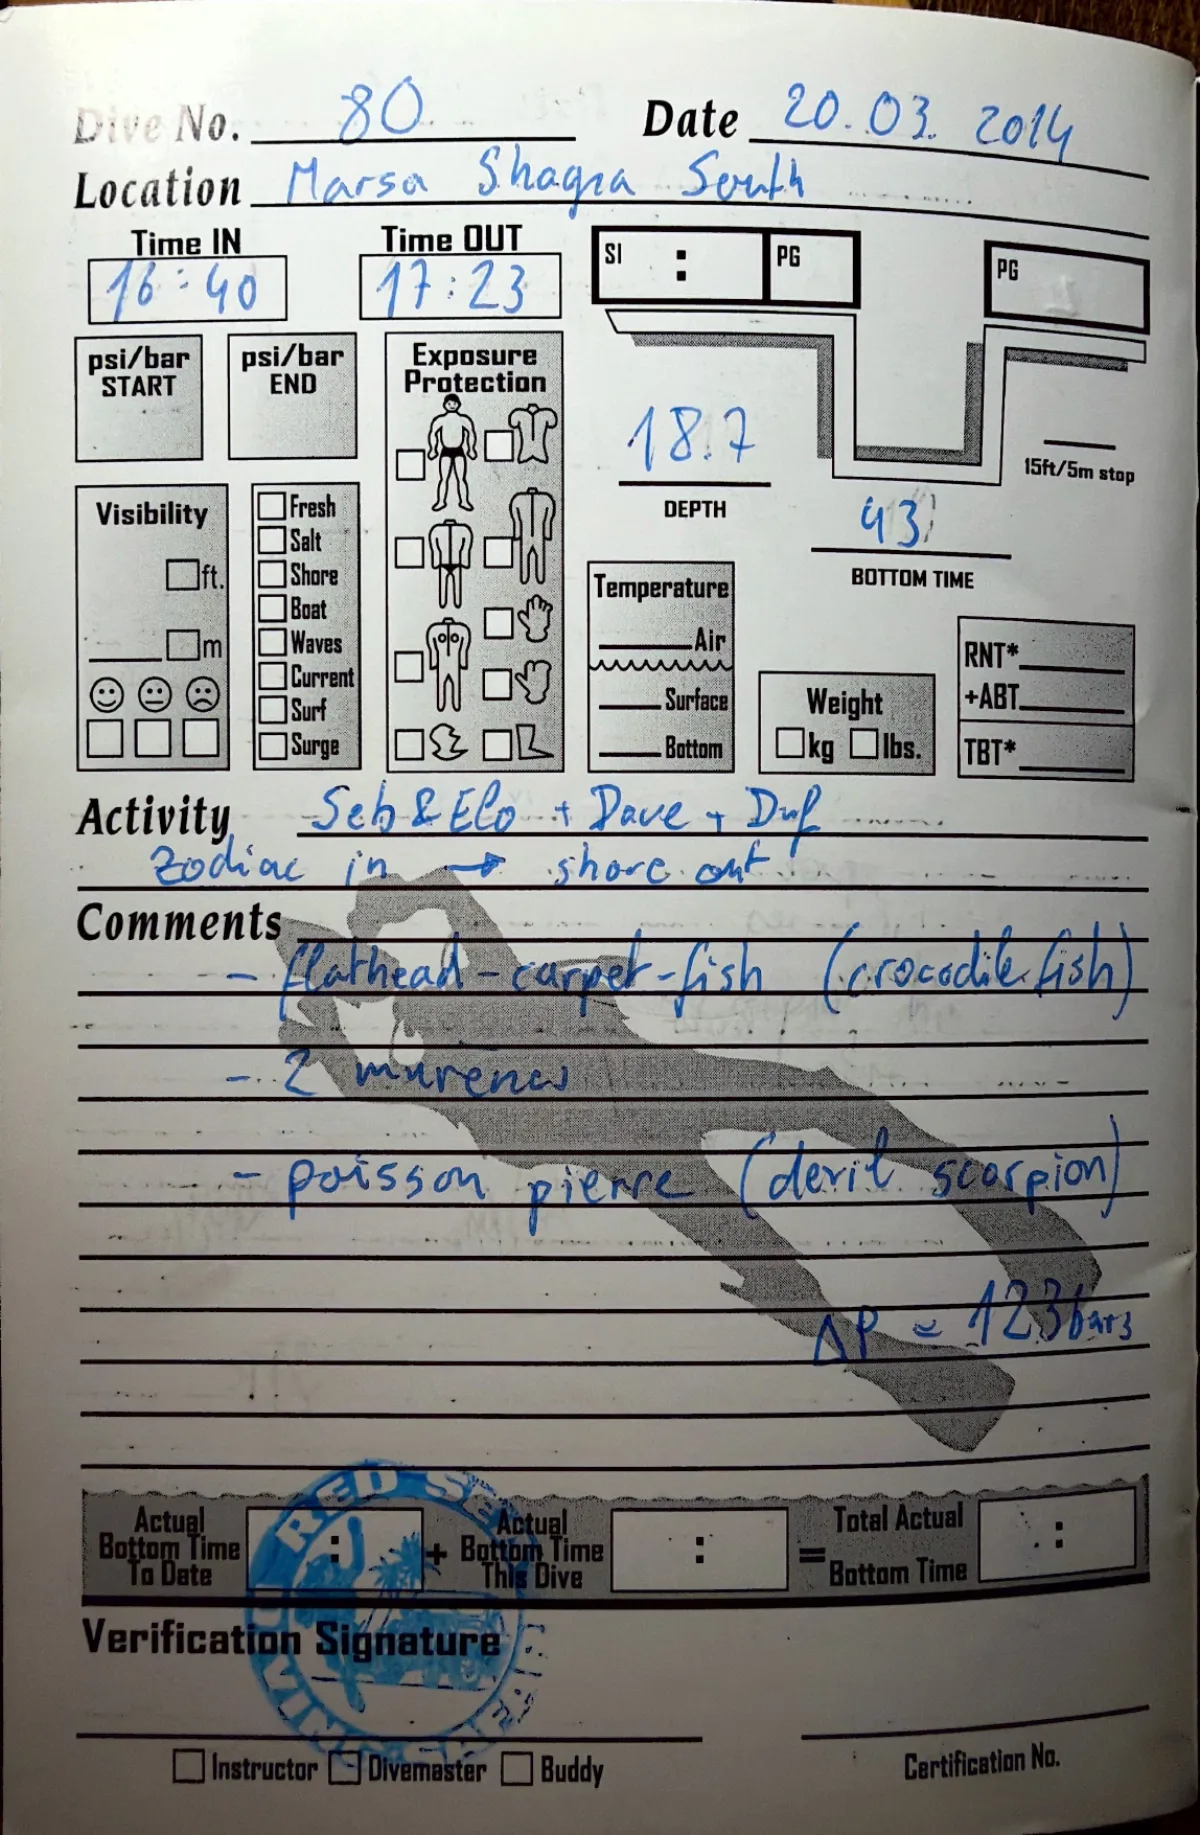 Dive No. 80 Date 20.03.2014
Location Marsa Shagra South
Time IN Time OUT
16:40 17:23
SI : PG PG
psi/bar START psi/bar END Exposure Protection
18.7
DEPTH
15ft/5m stop
43
BOTTOM TIME
Visibility
ft.
m
Fresh
Salt
Shore
Boat
Waves
Current
Surf
Surge
Temperature
Air
Surface
Bottom
Weight
kg lbs.
RNT*
+ABT
TBT*
Activity Seb & Elo + Dave + Duf
Zodiac in → shore out
Comments
- flathead-carpet-fish (crocodile fish)
- 2 murènes
- poisson pierre (devil scorpion)
ΔP = 123 bars
Actual Bottom Time To Date : + Actual Bottom Time This Dive : = Total Actual Bottom Time :
RED SEA
Verification Signature
Instructor Divemaster Buddy
Certification No.